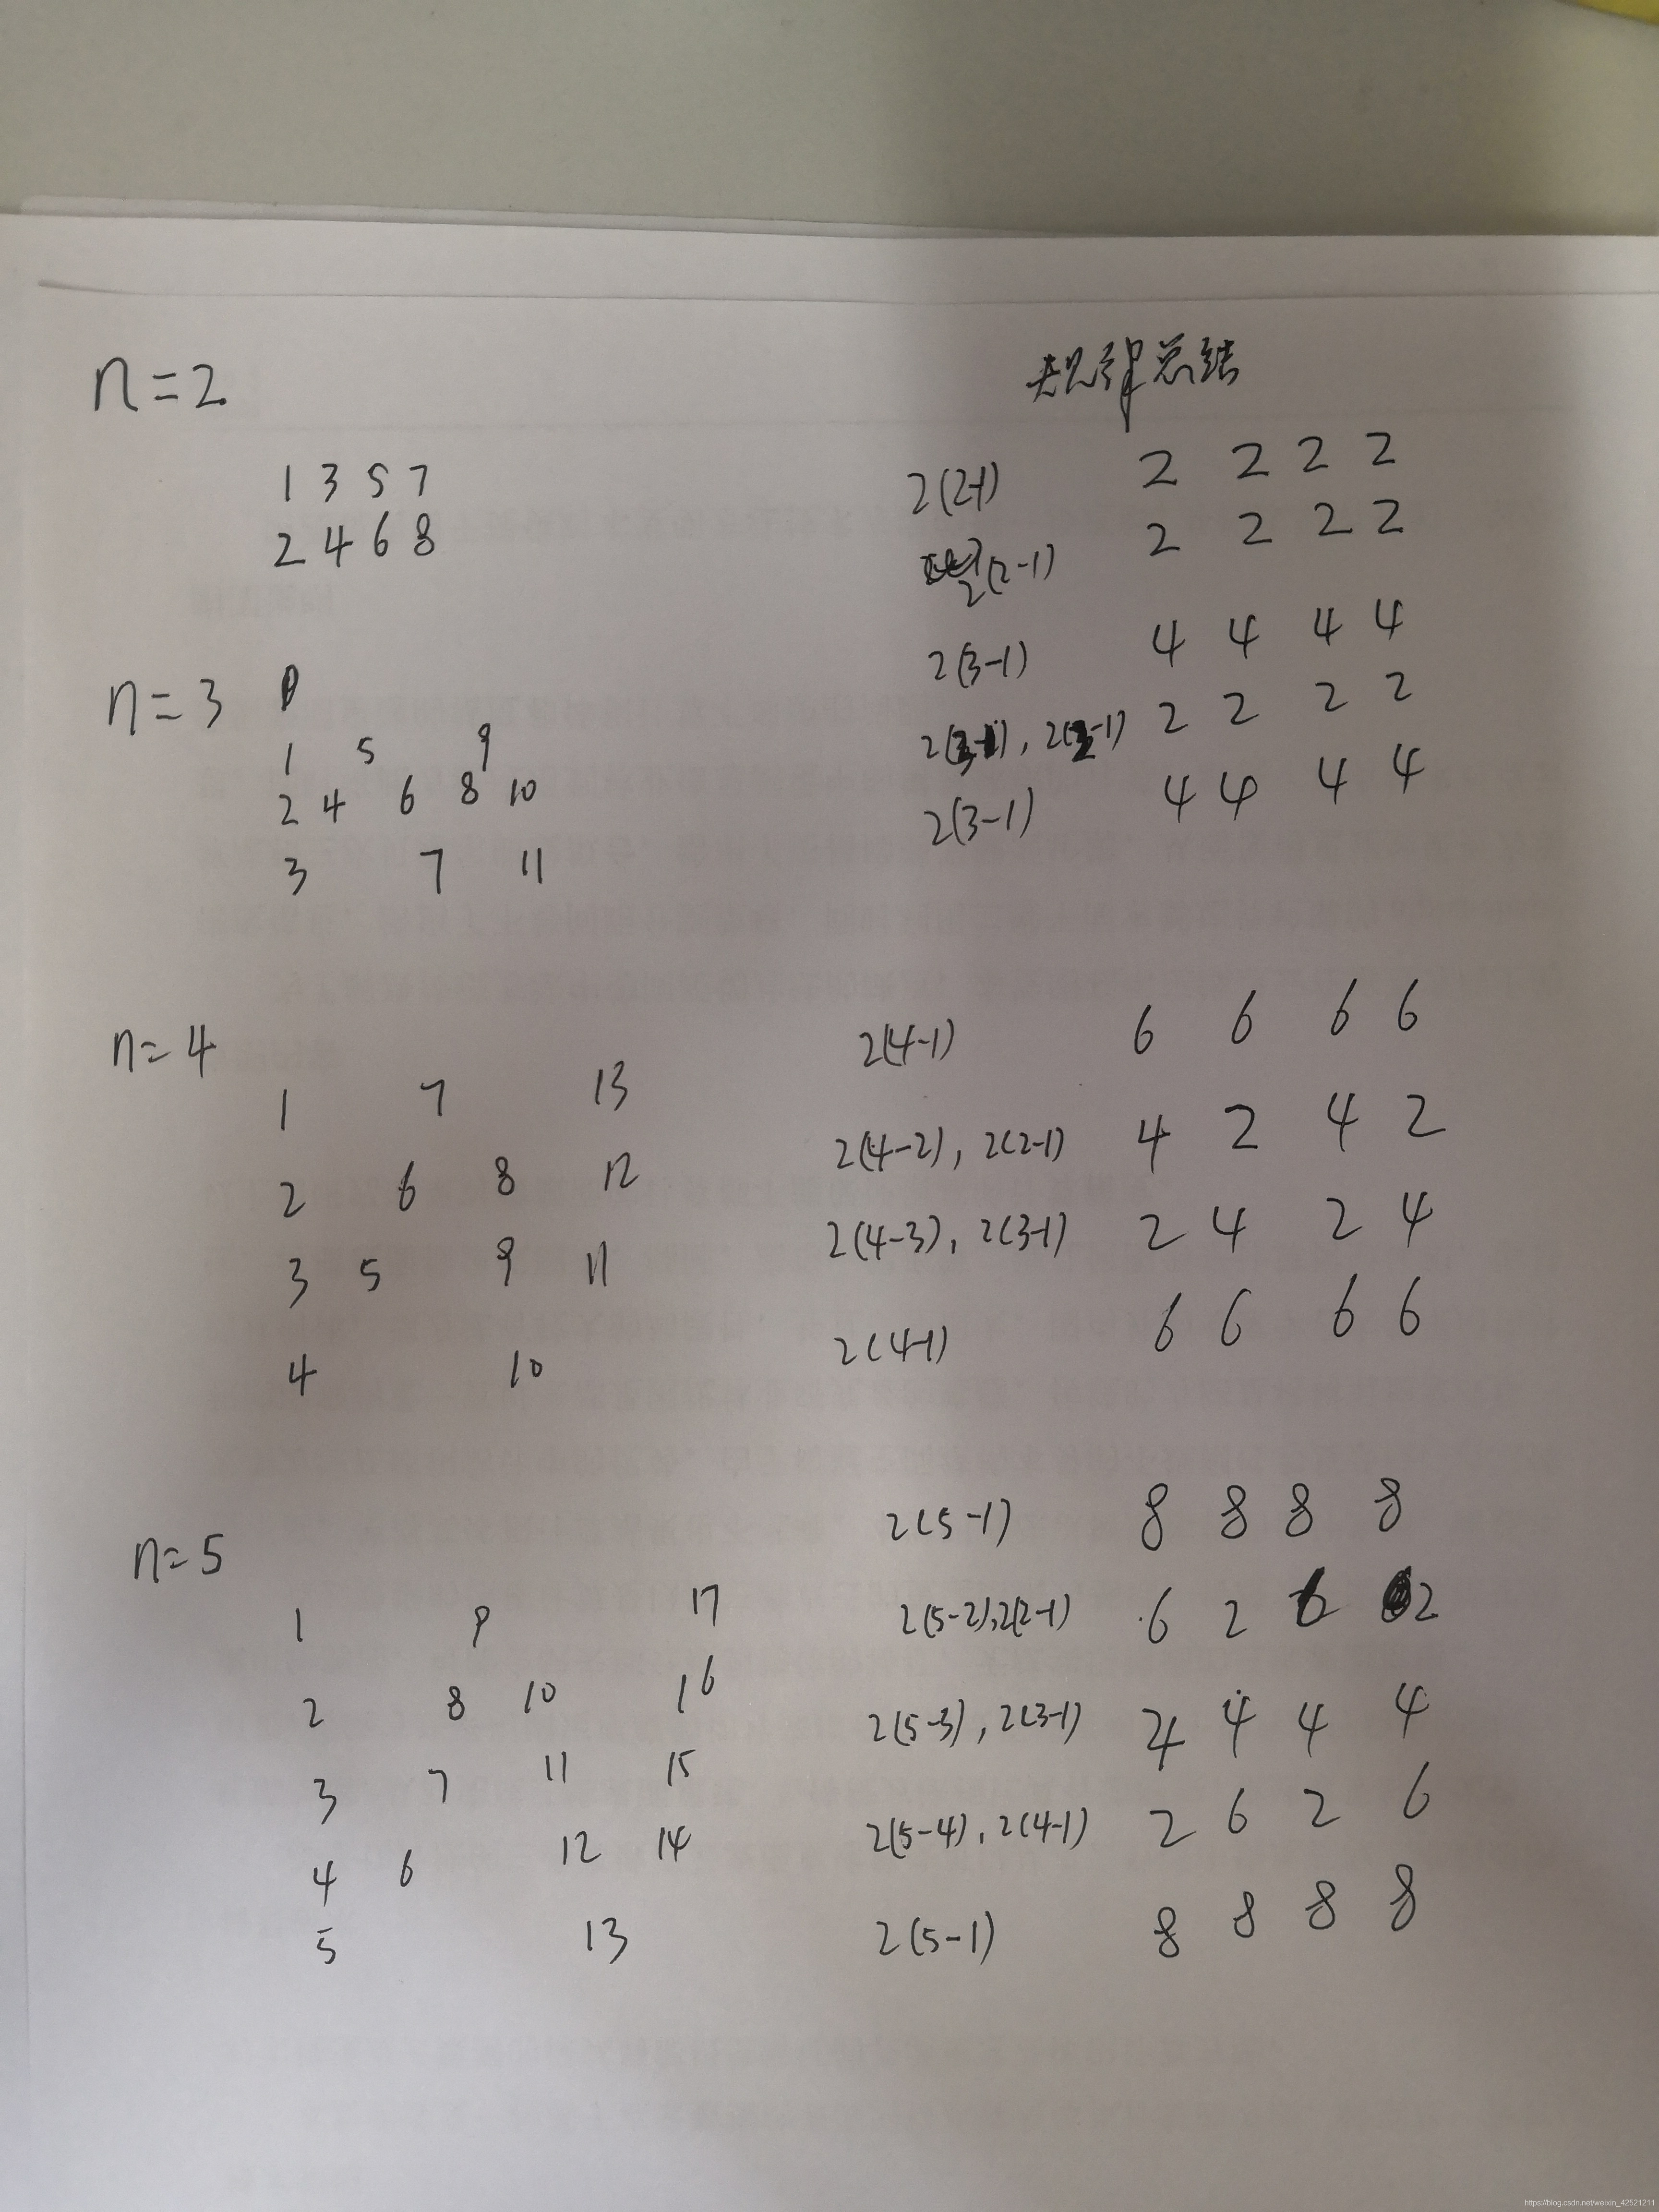 n=2
规律总结
1 3 5 7
2(2-1) 2 2 2 2
2 4 6 8
2(2-1) 2 2 2 2
n=3
2(3-1) 4 4 4 4
1 5 9
2 2 2 2
2 4 6 8 10
2(3-1) 4 4 4 4
3 7 11
n=4
2(4-1) 6 6 6 6
1 7 13
2(4-2), 2(2-1) 4 2 4 2
2 6 8 12
2(4-3), 2(3-1) 2 4 2 4
3 5 9 11
2(4-1) 6 6 6 6
4 10
n=5
2(5-1) 8 8 8 8
1 9 17
2(5-2), 2(2-1) 6 2 6 2
2 8 10 16
2(5-3), 2(3-1) 4 4 4 4
3 7 11 15
2(5-4), 2(4-1) 2 6 2 6
4 6 12 14
2(5-1) 8 8 8 8
5 13
https://blog.csdn.net/weixin_42521211